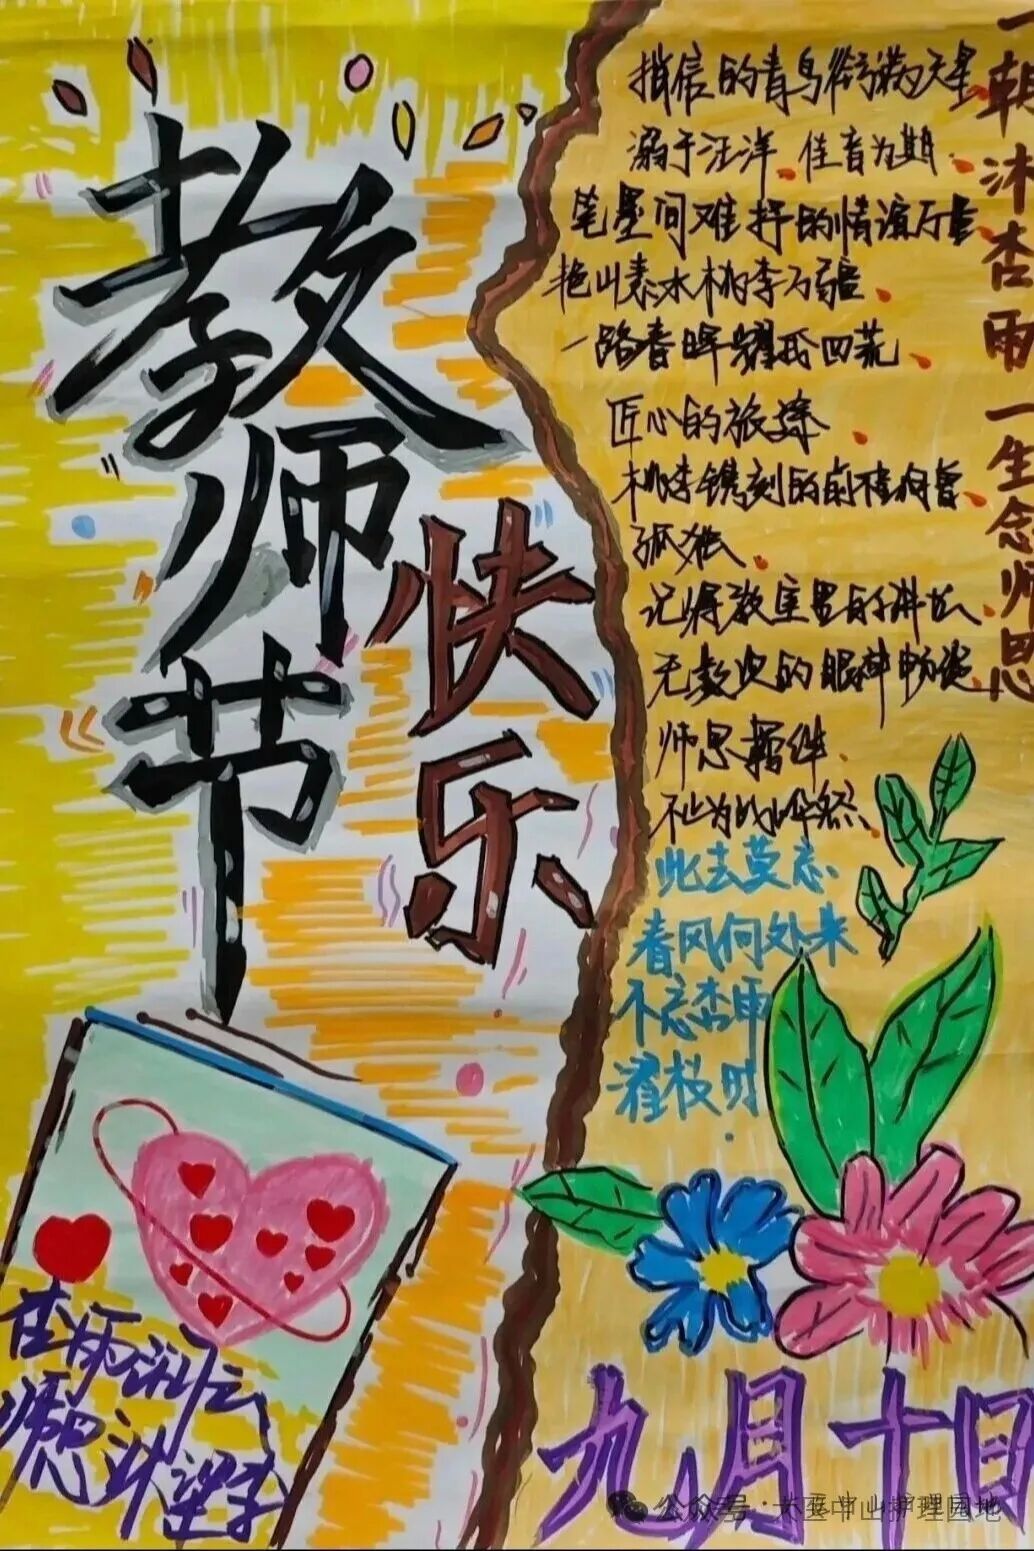 教师节
快乐
一朝沐杏雨 一生念师恩
捎信的青鸟衔满天星
溺于汪洋 佳音为期
笔墨间难抒的情谊万量
艳山素水桃李万疆
一路春晖耀氏四荒
匠心的旅途
桃李镌刻的前程将曾
孤独
记得教室里的讲台
无数次的眼神
师恩
不止为的
此去莫忘
春风何处来
不忘杏雨
濯枝时
九月十日
公众号·大亚中山护理园地